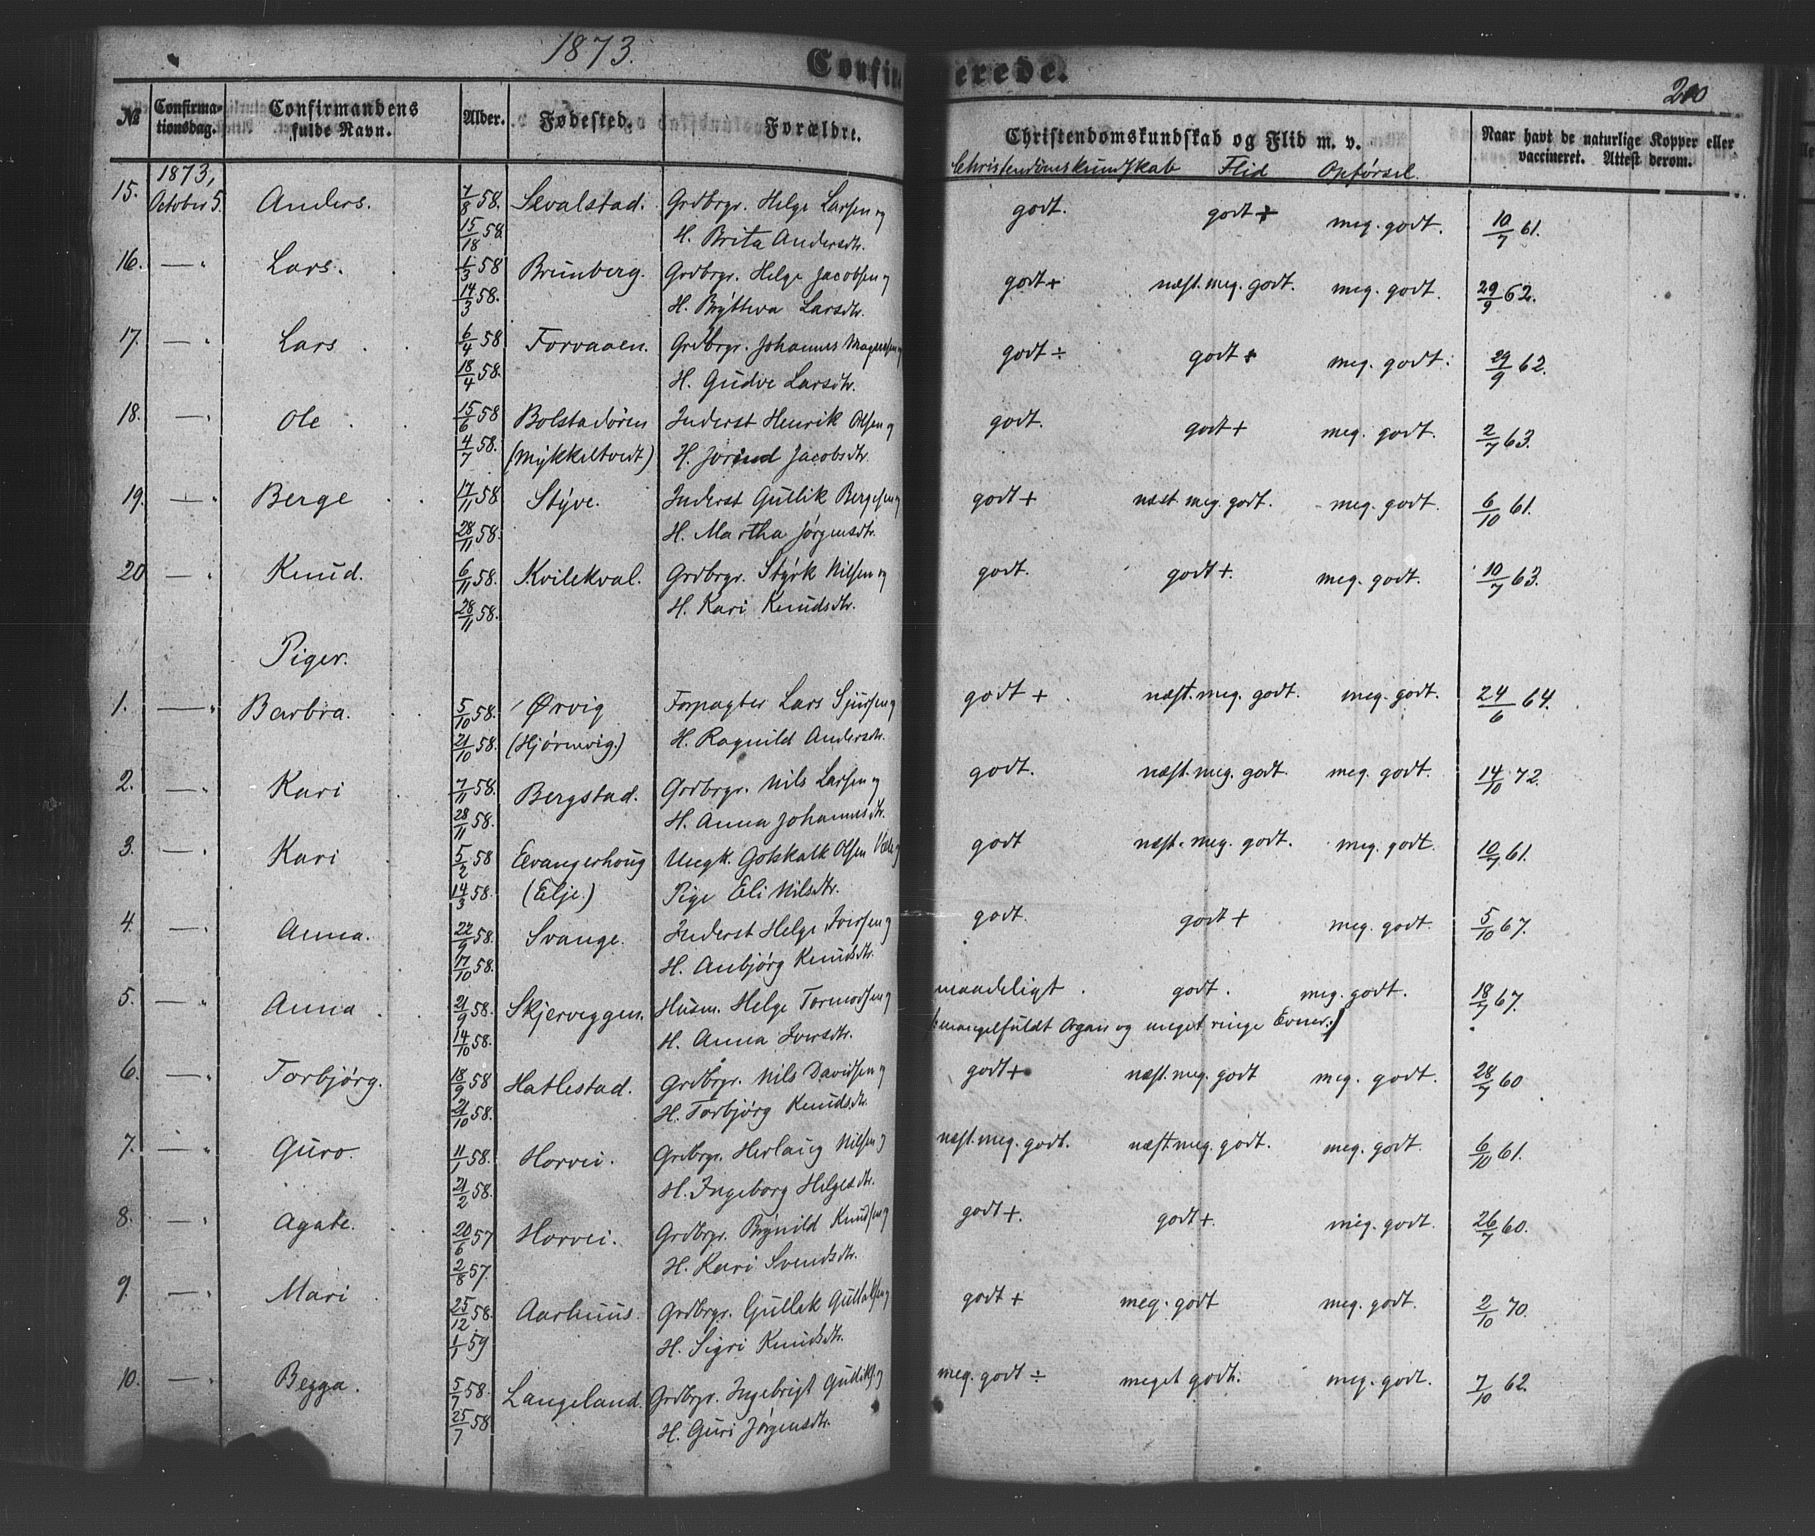 1873.
Confirmerede.
200
№ Confirmationsdag. Confirmandens fulde Navn. Alder. Fødested. Forældre. Christendomskundskab og Flid m. v. Naar havt de naturlige Kopper eller vaccineret. Attest derom.
Christendomskundskab Flid Opførsel.
1873,
15. October 5. Anders. 7/8 58. Sevalstad. Grdbrgr. Helge Larsen og godt. godt + meg. godt. 10/7 61.
15/18 58. H. Brita Andersdtr.
16. — " Lars. 1/3 58 Brunberg. Grdbrgr. Helge Jacobsen og godt + næst. meg. godt. meg. godt. 29/9 62.
14/3 58. H. Brÿtteva Larsdtr.
17. — " Lars 6/4 58 Forvaaen. Grdbrgr. Johannes Magnesen og godt ÷ godt + meg. godt. 29/9 62.
18/4 58. H. Gudve Larsdtr.
18. — " Ole 15/6 58 Bolstadøren Inderst Henrik Olsen og godt. godt + meg. godt. 2/7 63.
4/7 58. (Mÿkkeltvedt) H. Jorend Jacobsdtr.
19. — " Berge 17/11 58 Stÿve. Inderst Gullik Bergesen og godt + næst meg. godt. meg. godt. 6/10 61.
28/11 58. H. Martha Jørgensdtr.
20 — " Knud. 6/11 58. Kvilekval. Grdbrgr. Stÿrk Nilsen og godt. godt +. meg. godt. 10/7 63.
28/11 58. H. Kari Knudsdtr.
Piger.
1. — " Barbra. 5/10 58. Ørvig Forpagter Lars Sjursen og godt + næst. meg. godt. meg. godt. 24/6 64.
21/10 58. (Hjørnevig.) H. Ragnild Andersdtr.
2. — " Kari 7/11 58. Bergstad. Grdbrgr. Nils Larsen og godt. næst. meg. godt meg. godt. 14/10 72.
28/11 58. H. Anna Johannesdtr.
3. — " Kari 5/2 58 Evangerhoug Ungk. Gotskalk Olsen og godt næst. meg. godt. meg. godt. 10/7 61.
14/3 58. (Elje.) Pige Eli Nilsdtr.
4. — " Anna. 22/9 58. Svange. Inderst Helge Iversen og godt. godt + meg. godt. 5/10 67.
17/10 58. H. Anbjørg Knudsdtr.
5. — " Anna 21/9 58. Skjerveggen. Husm. Helge Tormodsen og maadeligt. godt. meg. godt. 18/7 67.
14/10 58. H. Anna Iversdtr. (: mangelfuldt Organ og meget ringe Evner :)
6. — " Torbjørg. 18/9 58 Hatlestad. Grdbrgr. Nils Davidsen og godt + næst. meg. godt meg. godt. 28/7 60
21/10 58. H. Torbjørg Knudsdtr.
7. — " Guro. 11/1 58. Horvei. Grdbrgr. Herlaug Nilsen og næst. meg. godt. næst meg. godt. meg. godt. 6/10 61.
21/2 58. H. Ingeborg Helgesdtr.
8. — " Agate. 20/6 57 Horvei. Grdbrgr. Brÿnild Knudsen og godt +. godt +. meg. godt. 26/7 60.
2/8 57. H. Kari Svendsdtr.
9. — " Mari 25/12 58. Aarhuus. Grdbrgr. Gullak Gullaksen og godt + meg. godt meg. godt. 2/10 70.
1/1 59 H. Sigri Knudsdtr.
10. — " Begga. 5/7 58. Langeland. Grdbrgr. Ingebrigt Guliks. og meg. godt ÷ meget godt. meg. godt. 7/10 62.
25/7 58 H. Guri Jørgensdtr.